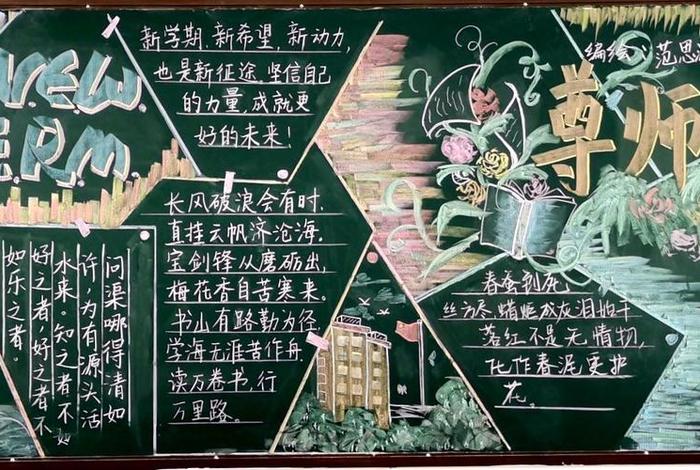 NEW
TERM
新学期.新希望.新动力,
也是新征途.坚信自己
的力量,成就更
好的未来!
长风破浪会有时,
直挂云帆济沧海.
宝剑锋从磨砺出,
梅花香自苦寒来。
书山有路勤为径
学海无涯苦作舟
读万卷书,行
万里路。
问渠哪得清如
许,为有源头活
水来。知之者不如
好之者,好之者不
如乐之者。
编绘:范思
尊师
春蚕到死
丝方尽 蜡炬成灰泪始干
落红不是无情物,
化作春泥更护
花。